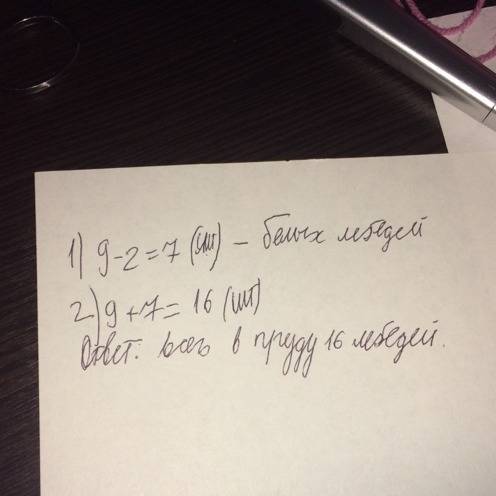 1) 9-2=7 (шт) - белых лебедей
2) 9+7= 16 (шт)
Ответ: всего в пруду 16 лебедей.